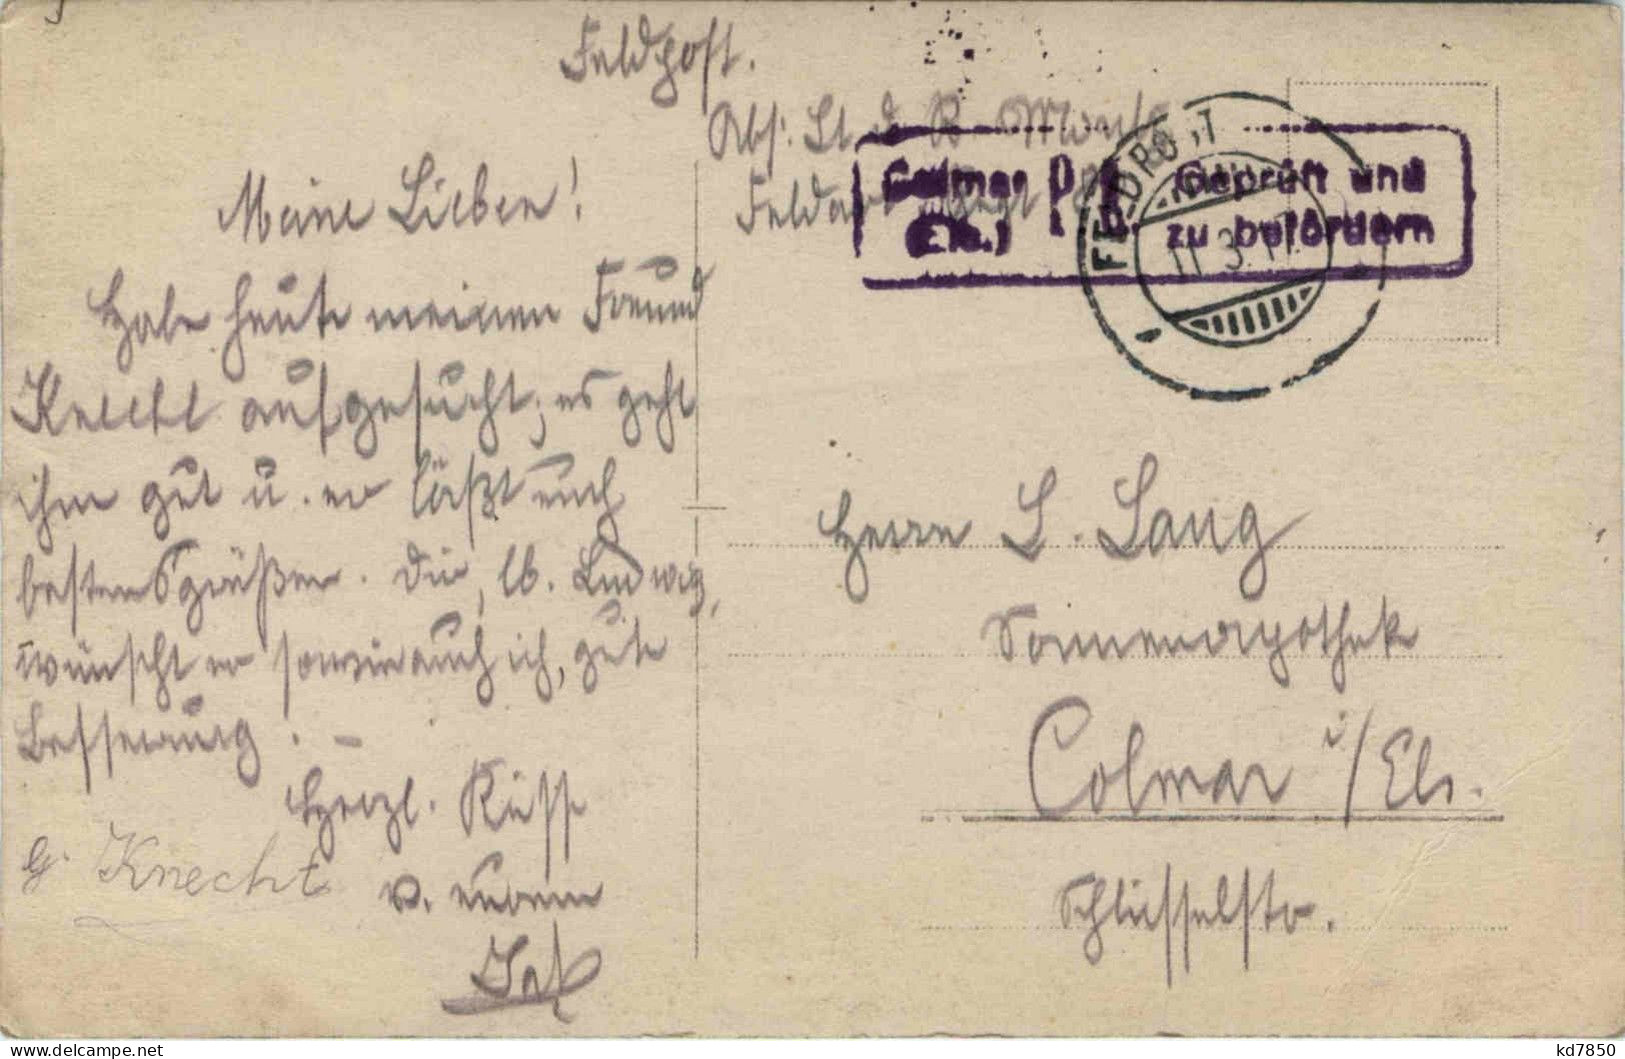 Feldpost.
Abs: Lt. d. R.
Feldart Regt
Colmar Geprüft und
(Els.) zu befördern
FELDPOST
11.3.17.
Meine Lieben!
Habe heute meinen Freund
Knecht aufgesucht; es geht
ihm gut u. er läßt euch
bestens grüßen. Dir, lb. Ludwig,
wünscht er sowie auch ich, gute
Besserung. –
Herzl. Küsse
v. eurem
G. Knecht
Herrn L. Lang
Sonnenapotheke
Colmar i/Els.
Schlüsselstr.
kd7850